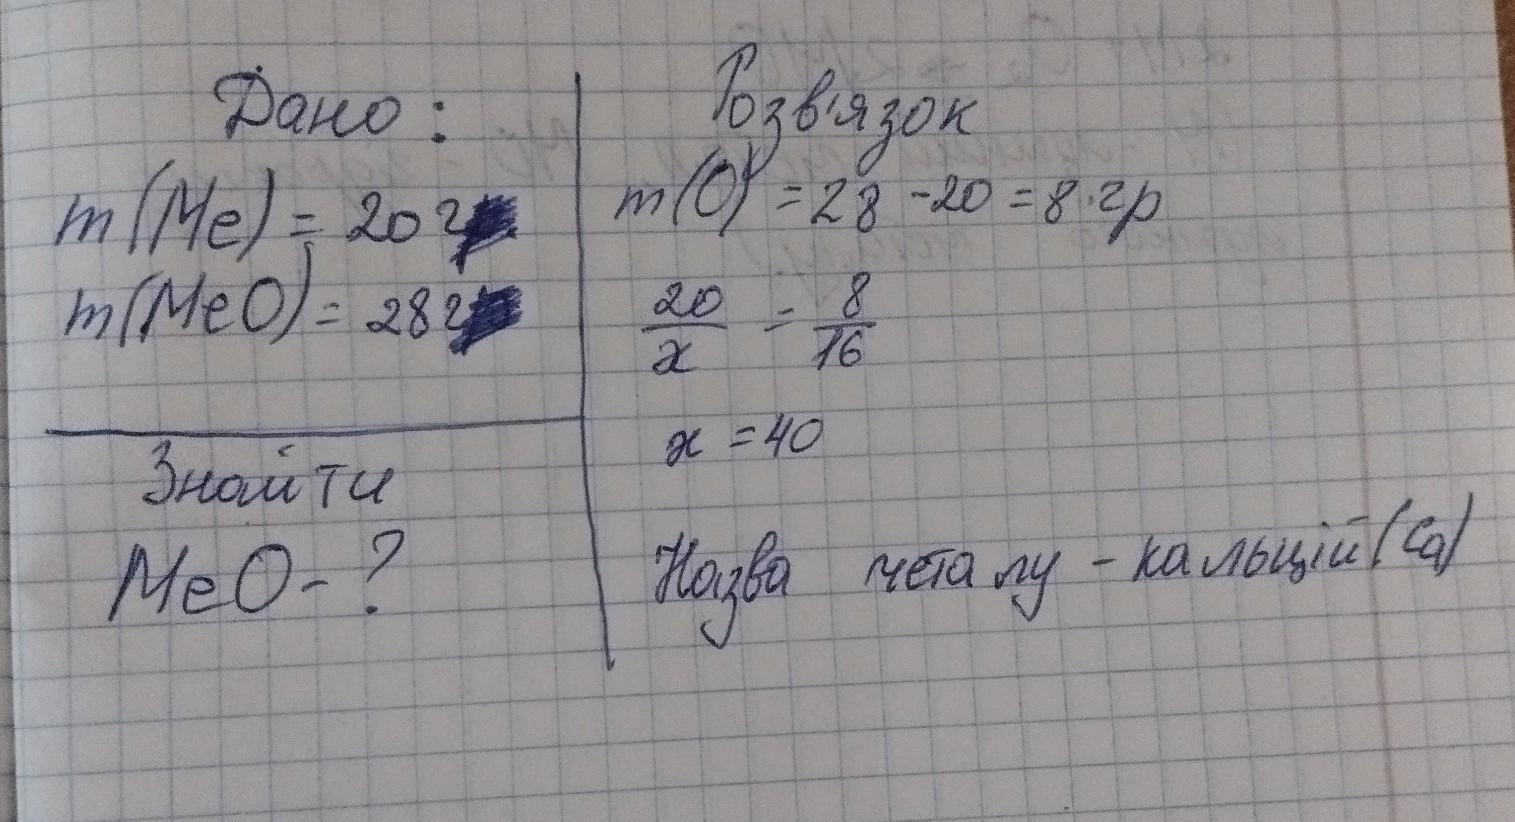 Дано:
m(Me) = 20 г
m(MeO) = 28 г
Знайти
MeO - ?
Розв'язок
m(O) = 28 - 20 = 8 гр
20/x = 8/16
x = 40
Назва металу - кальцій (Ca)